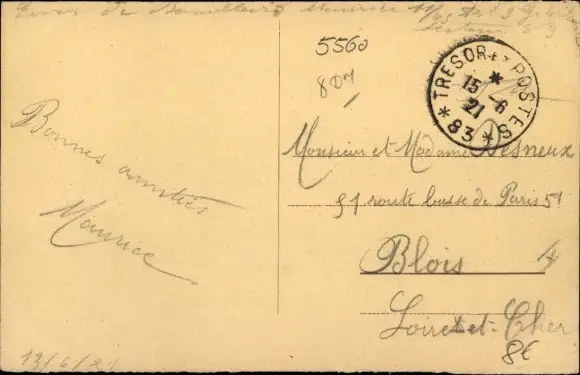 Maurice
5560
8DM
TRESOR ET POSTES
15-6
21
* 83 *
Bonnes amitiés
Maurice
Monsieur et Madame Desneux
51 route basse de Paris 51
Blois
Loir-et-Cher
8€
13/6/21